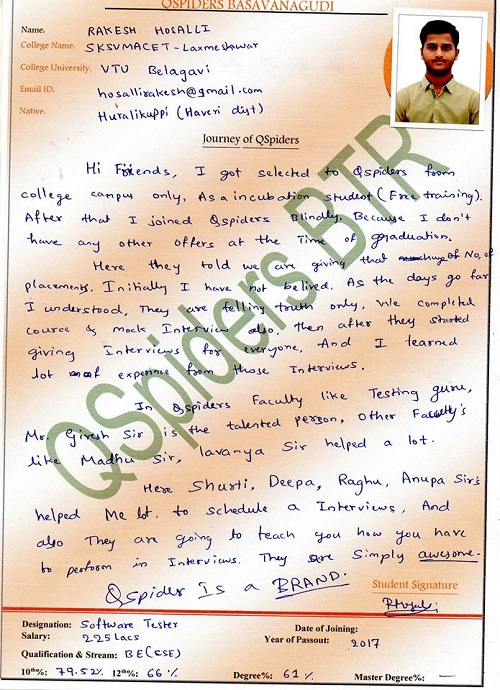 QSPIDERS BASAVANAGUDI
Name. RAKESH HOSALLI
College Name. SKSVMACET - Laxmeshwar
College University. VTU Belagavi
Email ID. hosallirakesh@gmail.com
Native. Huralikuppi (Haveri dist)
Journey of QSpiders
Hi Friends, I got selected to Qspiders from
college campus only, As a incubation student (Free training).
After that I joined Qspiders Blindly, Because I don't
have any other offers at the Time of graduation.
Here they told we are giving that of No, of
placements, Initially I have not belived, As the days go far
I understood, They are telling truth only, We completed
cource & mock Interview also, then after they started
giving Interviews for everyone, And I learned
lot of experince from those Interviews.
In Qspiders Faculty like Testing guru,
Mr. Giresh Sir is the talented person, Other Faculty's
like Madhu Sir, lavanya Sir helped a lot.
Here Shruti, Deepa, Raghu, Anupa Sir's
helped Me lot. to schedule a Interviews, And
also They are going to teach you how you have
to perform in Interviews. They are Simply awesome.
Qspider Is a BRAND.
Student Signature
Designation: Software Tester
Date of Joining:
Salary: 2.25 lacs
Year of Passout: 2017
Qualification & Stream: BE(CSE)
10th%: 79.52% 12th%: 66% Degree%: 61% Master Degree%: —
QSpiders BTR